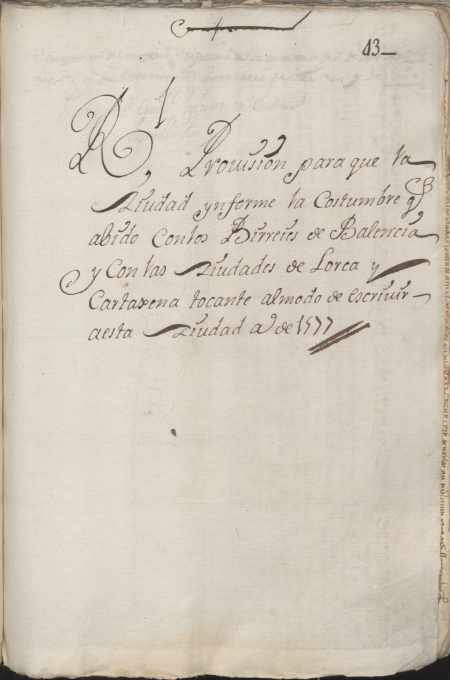 43
Rl Prouision para que la
Ziudad ynforme la Costumbre q
abido Con los Birreies de Balencia
y Con las Ziudades de Lorca y
Cartaxena tocante al modo de escriuir
a esta Ziudad aº de 1577